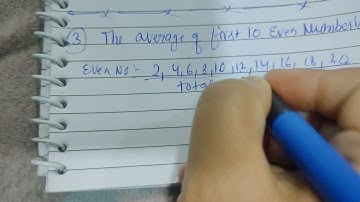 ③ The average of first 10 Even Number is
Even No:- 2, 4, 6, 8, 10, 12, 14, 16, 18, 20